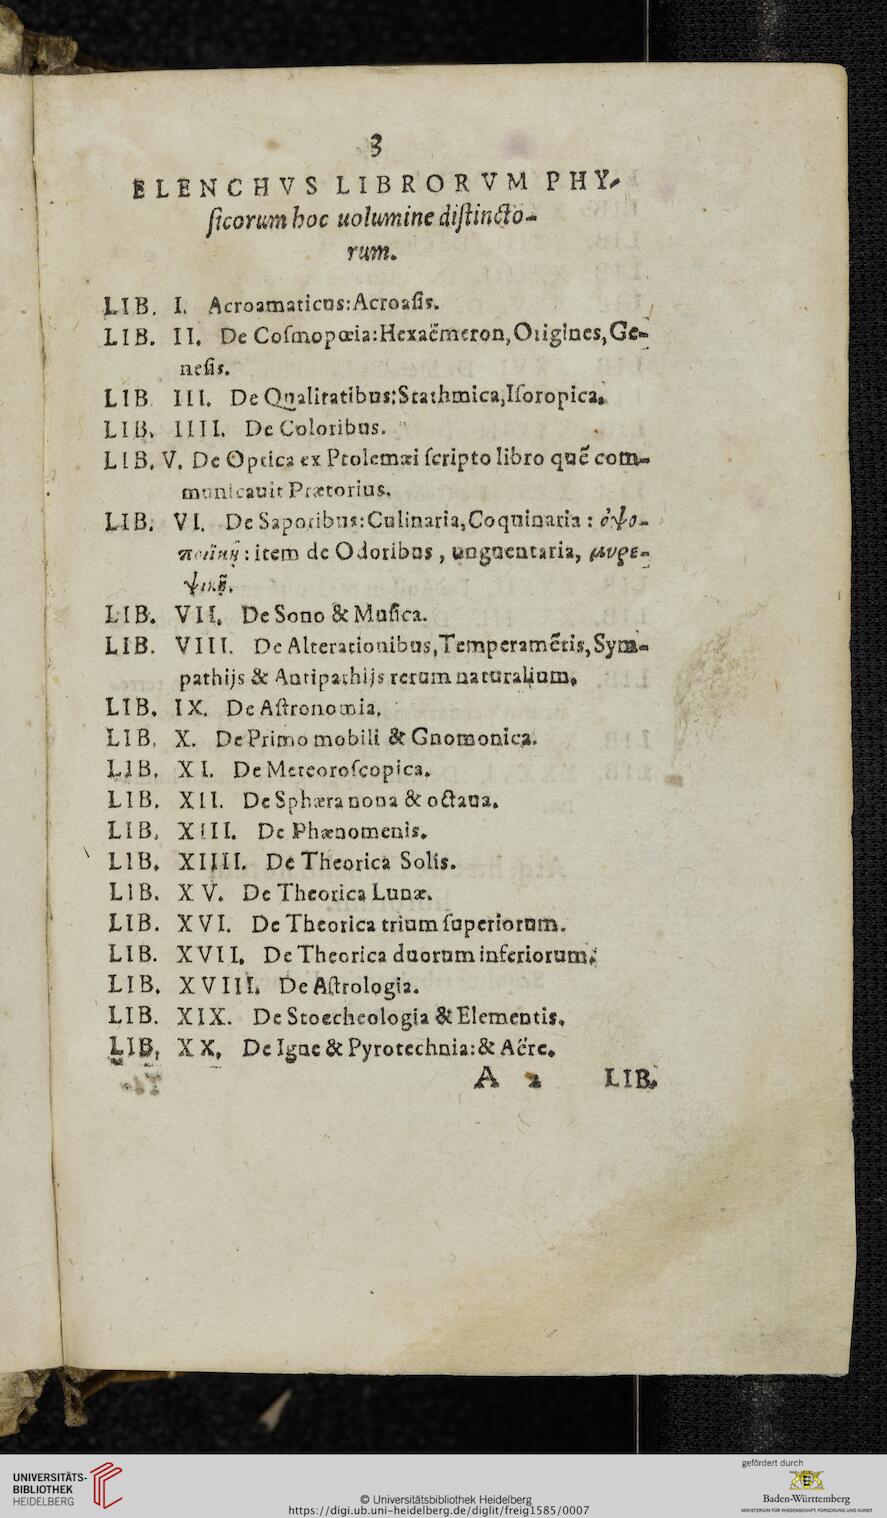 3
ELENCHVS LIBRORVM PHY-
ſicorum hoc uolumine diſtincto-
rum.
LIB. I. Acroamaticus: Acroaſis.
LIB. II. De Coſmopœia: Hexaëmeron, Origines, Ge-
neſis.
LIB. III. De Qualitatibus: Stathmica, Iſoropica.
LIB. IIII. De Coloribus.
LIB. V. De Optica ex Ptolemæi ſcripto libro quē com-
municauit Prætorius.
LIB. VI. De Saporibus: Culinaria, Coquinaria: ὀψο-
: item de Odoribus, unguentaria,
LIB. VII. De Sono & Muſica.
LIB. VIII. De Alterationibus, Temperamētis, Sym-
pathijs & Antipathijs rerum naturalium.
LIB. IX. De Aſtronomia.
LIB. X. De Primo mobili & Gnomonica.
LIB. XI. De Meteoroſcopica.
LIB. XII. De Sphæra nona & octaua.
LIB. XIII. De Phænomenis.
LIB. XIIII. De Theorica Solis.
LIB. XV. De Theorica Lunæ.
LIB. XVI. De Theorica trium ſuperiorum.
LIB. XVII. De Theorica duorum inferiorum.
LIB. XVIII. De Aſtrologia.
LIB. XIX. De Stoecheologia & Elementis.
LIB. XX. De Igne & Pyrotechnia: & Aëre.
A 2 LIB.
UNIVERSITÄTS-
BIBLIOTHEK
HEIDELBERG
© Universitätsbibliothek Heidelberg
https://digi.ub.uni-heidelberg.de/diglit/freig1585/0007
gefördert durch
Baden-Württemberg
MINISTERIUM FÜR WISSENSCHAFT, FORSCHUNG UND KUNST